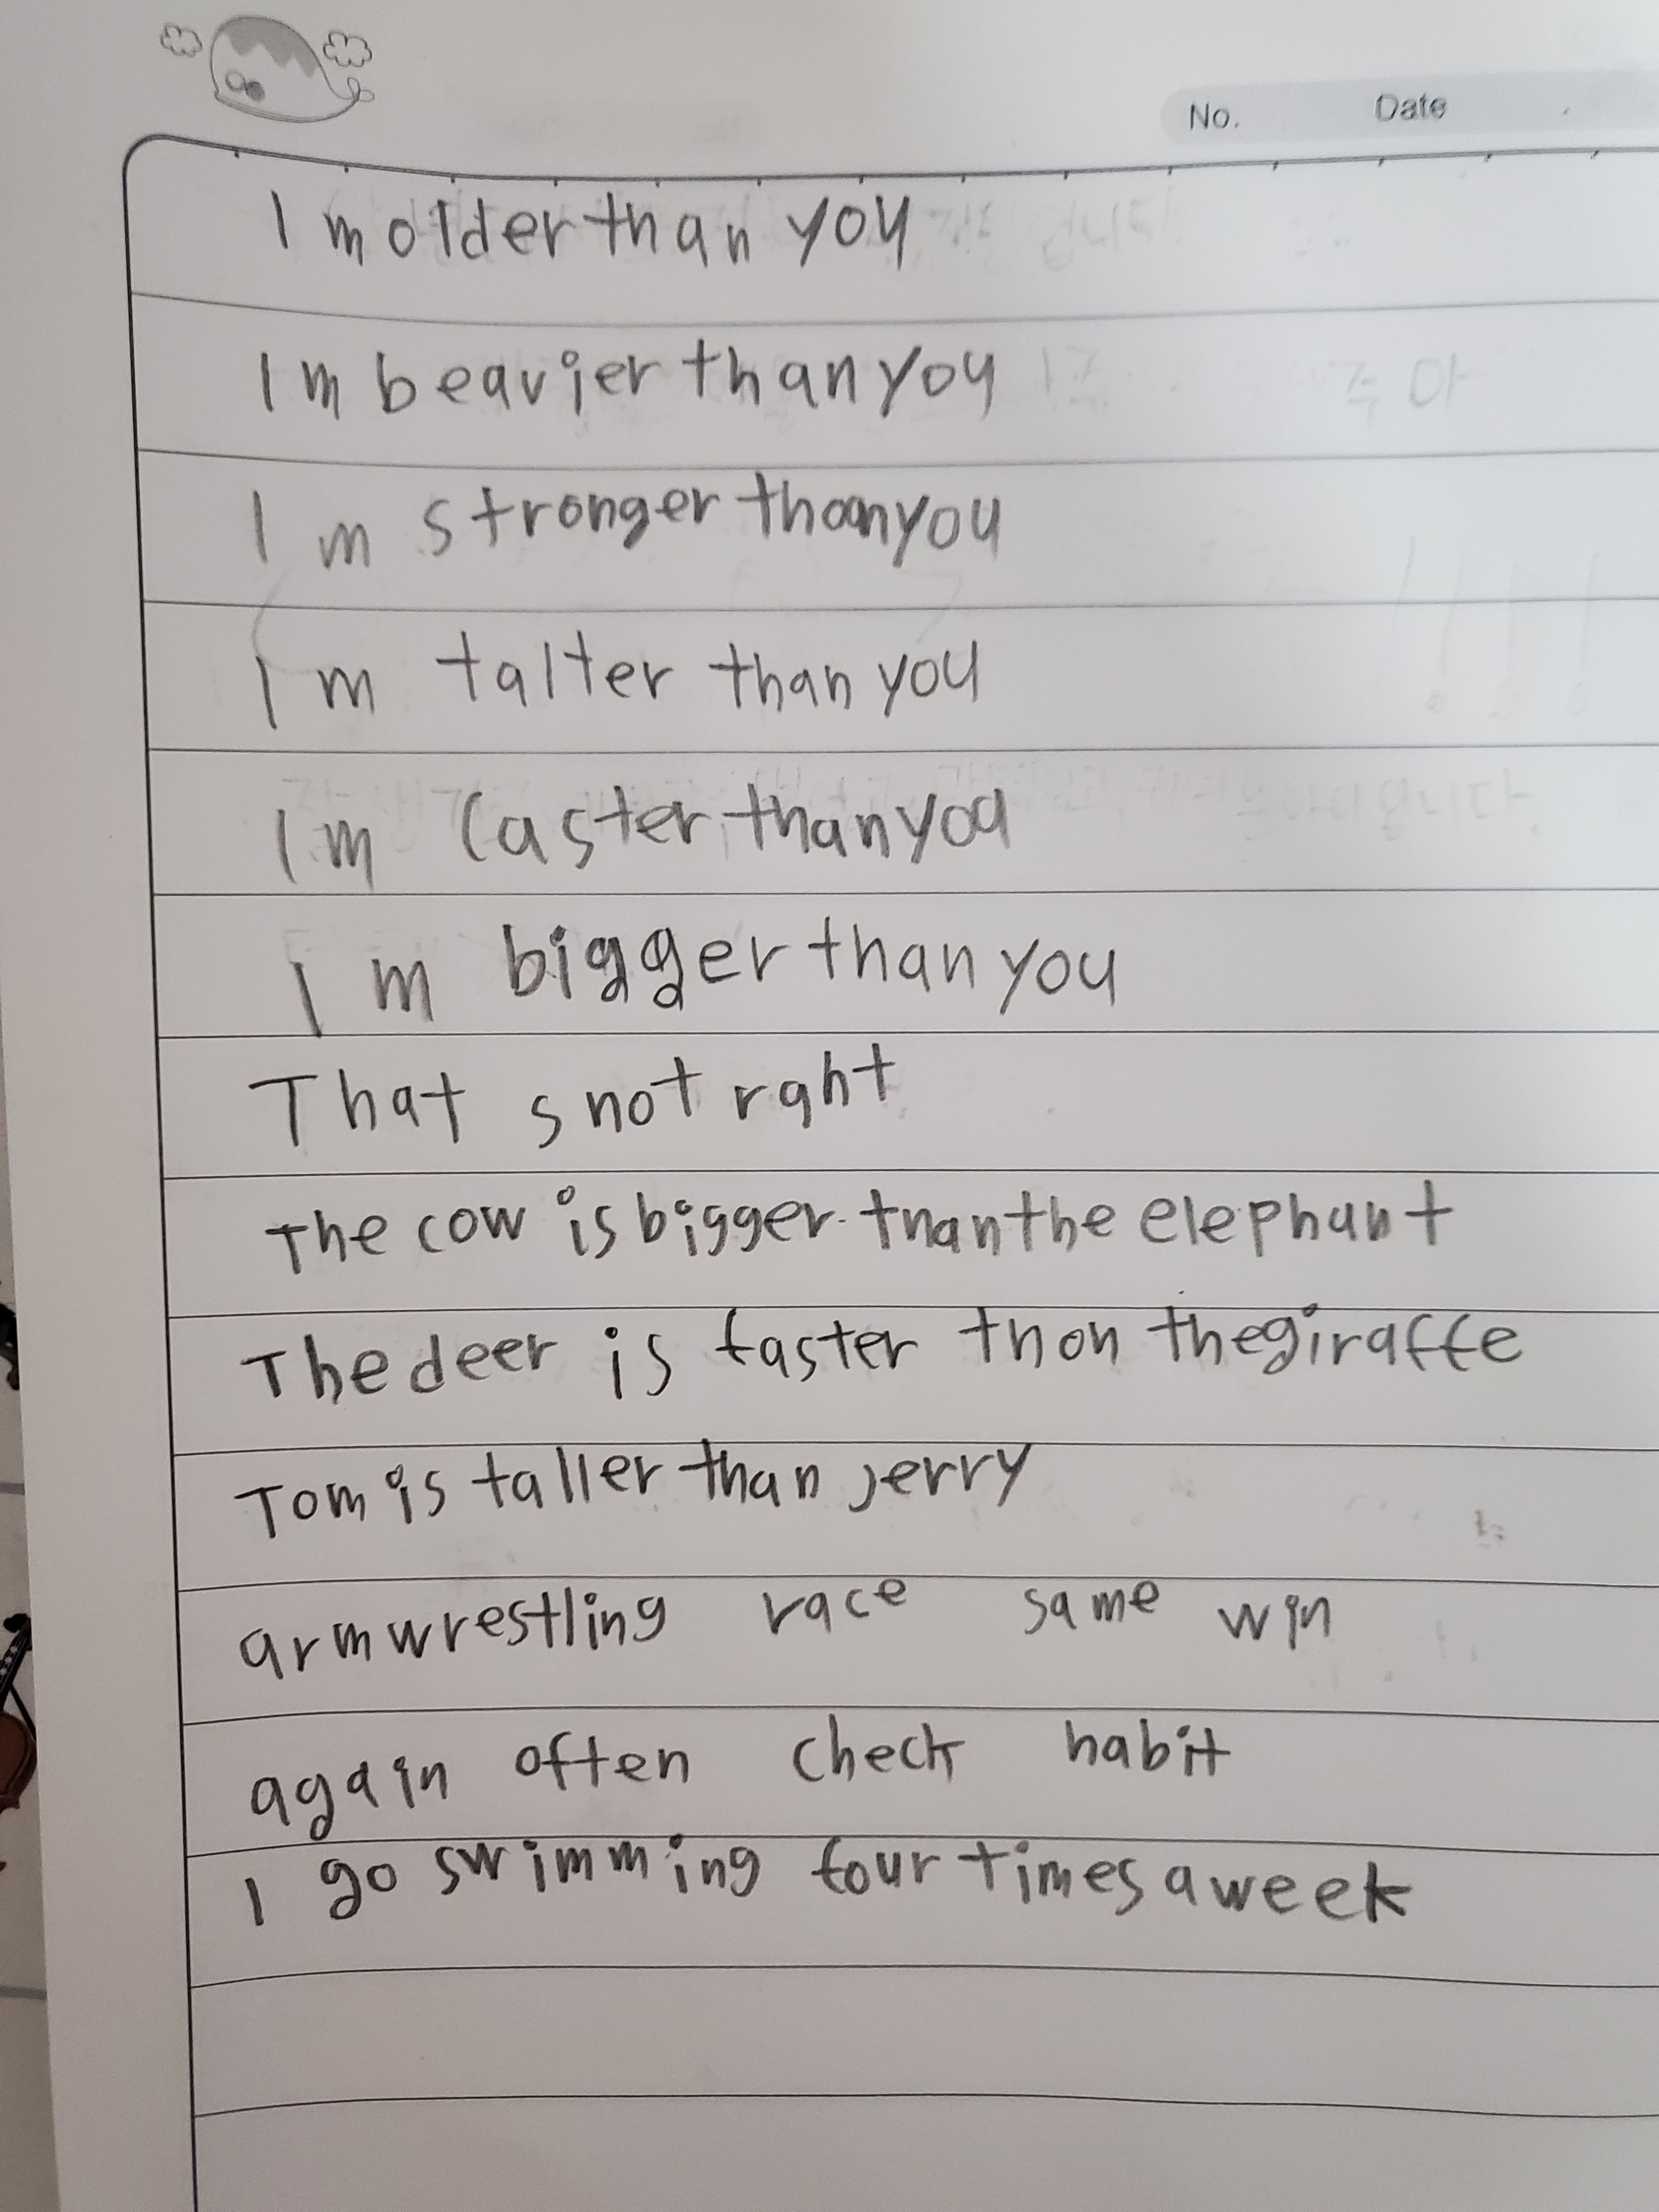 No. Date
I m older than you
I m beavier than you
I m stronger than you
I m talter than you
I m faster than you
I m bigger than you
That s not rght
The cow is bigger than the elephant
The deer is faster than the giraffe
Tom is taller than Jerry
arm wrestling race same win
again often check habit
I go swimming four times a week